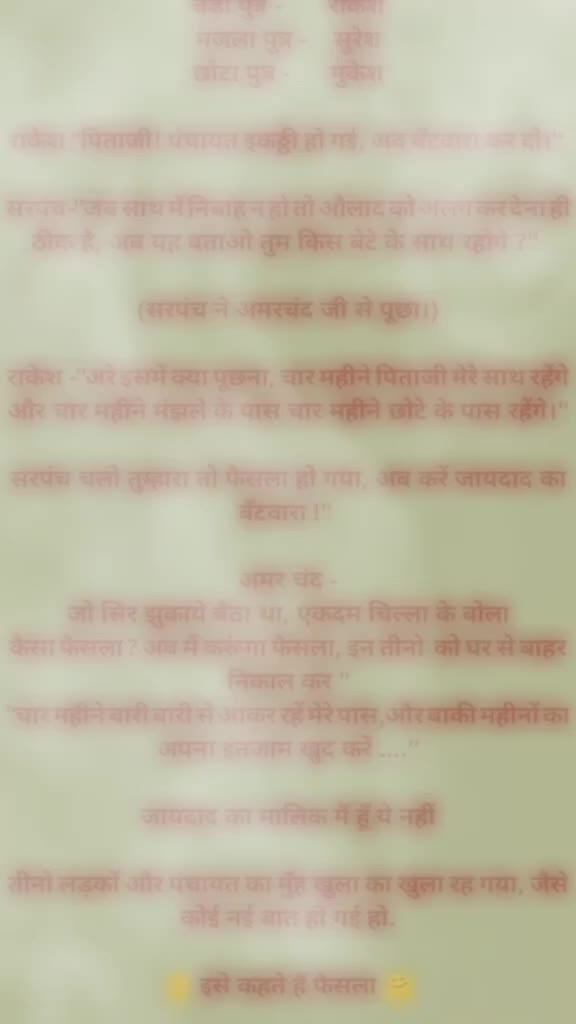 बड़ा पुत्र - राकेश
मजला पुत्र - सुरेश
छोटा पुत्र - मुकेश
राकेश "पिताजी! पंचायत इकट्ठी हो गई, अब बँटवारा कर दो।"
सरपंच-"जब साथ में निबाह न हो तो औलाद को अलग कर देना ही
ठीक है, अब यह बताओ तुम किस बेटे के साथ रहोगे ?"
(सरपंच ने अमरचंद जी से पूछा।)
राकेश -"अरे इसमें क्या पूछना, चार महीने पिताजी मेरे साथ रहेंगे
और चार महीने मंझले के पास चार महीने छोटे के पास रहेंगे।"
सरपंच चलो तुम्हारा तो फैसला हो गया, अब करें जायदाद का
बँटवारा !"
अमर चंद -
जो सिर झुकाये बैठा था, एकदम चिल्ला के बोला
कैसा फैसला ? अब मैं करूंगा फैसला, इन तीनो को घर से बाहर
निकाल कर "
"चार महीने बारी बारी से आकर रहें मेरे पास,और बाकी महीनों का
अपना इंतजाम खुद करें ...."
जायदाद का मालिक मैं हूँ ये नहीं
तीनो लड़कों और पंचायत का मुँह खुला का खुला रह गया, जैसे
कोई नई बात हो गई हो.
इसे कहते हैं फैसला